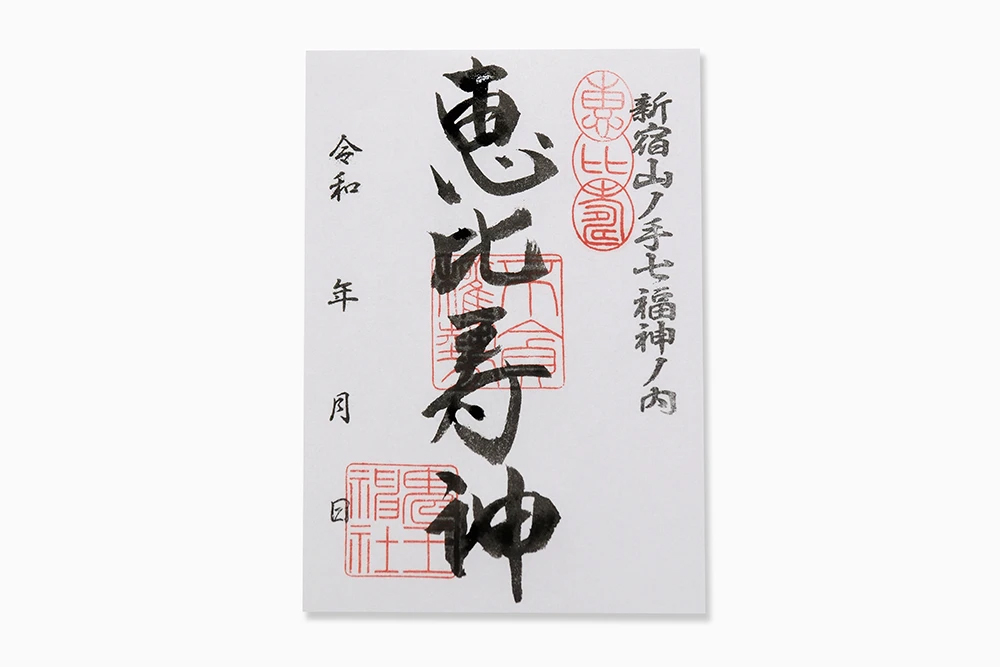 新宿山ノ手七福神ノ内
恵比寿
恵比寿神
令和 年 月 日
鬼王
神社